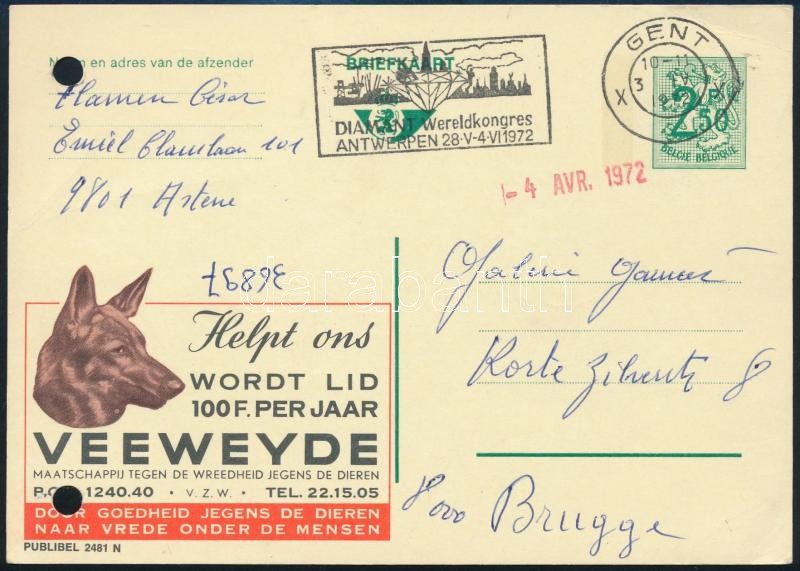 Naam en adres van de afzender
Emiel
101
9801 Astene
BRIEFKAART
DIAMANT Wereldkongres
ANTWERPEN 28-V-4-VI 1972
GENT
10-11
3 IV
1972
X X
2F50
BELGIE BELGIQUE
- 4 AVR. 1972
36897
darabanth
Galerie
Korte Zilverstr 8
8000 Brugge
Helpt ons
WORDT LID
100 F. PER JAAR
VEEWEYDE
MAATSCHAPPIJ TEGEN DE WREEDHEID JEGENS DE DIEREN
1240.40 · V.Z.W. · TEL. 22.15.05
DOOR GOEDHEID JEGENS DE DIEREN
NAAR VREDE ONDER DE MENSEN
PUBLIBEL 2481 N